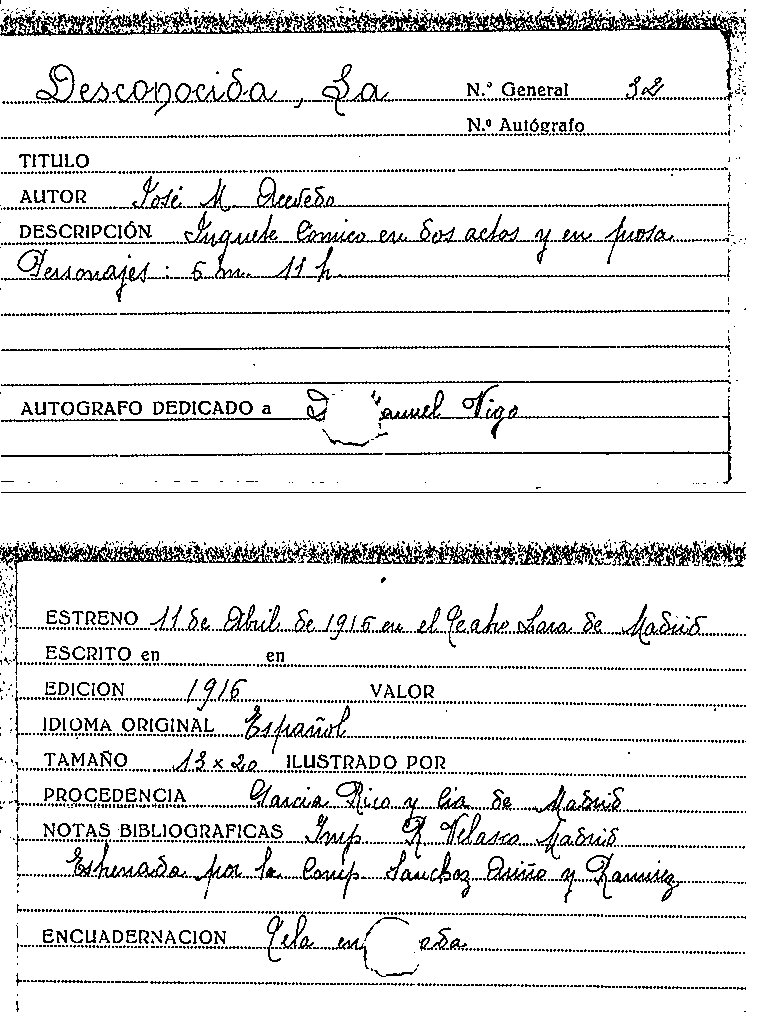 Desconocida, La N.º General 32
N.º Autógrafo
TITULO
AUTOR José M. Acevedo
DESCRIPCIÓN Juguete Cómico en dos actos y en prosa
Personajes: 6 m. 11 h.
AUTOGRAFO DEDICADO a D anuel Vigo
ESTRENO 11 de Abril de 1916 en el Teatro Lara de Madrid
ESCRITO en en
EDICION 1916 VALOR
IDIOMA ORIGINAL Español
TAMAÑO 13 x 20 ILUSTRADO POR
PROCEDENCIA Garcia Rico y Cia de Madrid
NOTAS BIBLIOGRAFICAS Imp R Velasco Madrid
Estrenada por la Comp Sanchez Ariño y Ramirez
ENCUADERNACION Tela en ada